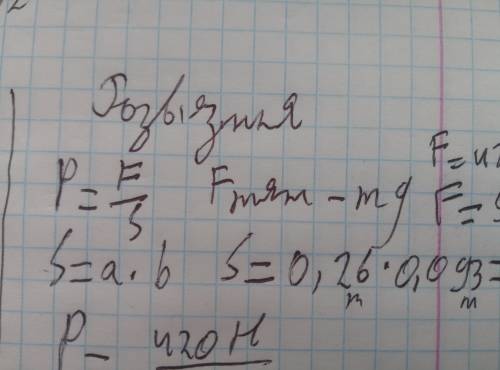 Розвязння
P = F/S Fтяж - mg F = 42
F =
S = a · b S = 0,26 · 0,093 =
м м
P - 420 Н